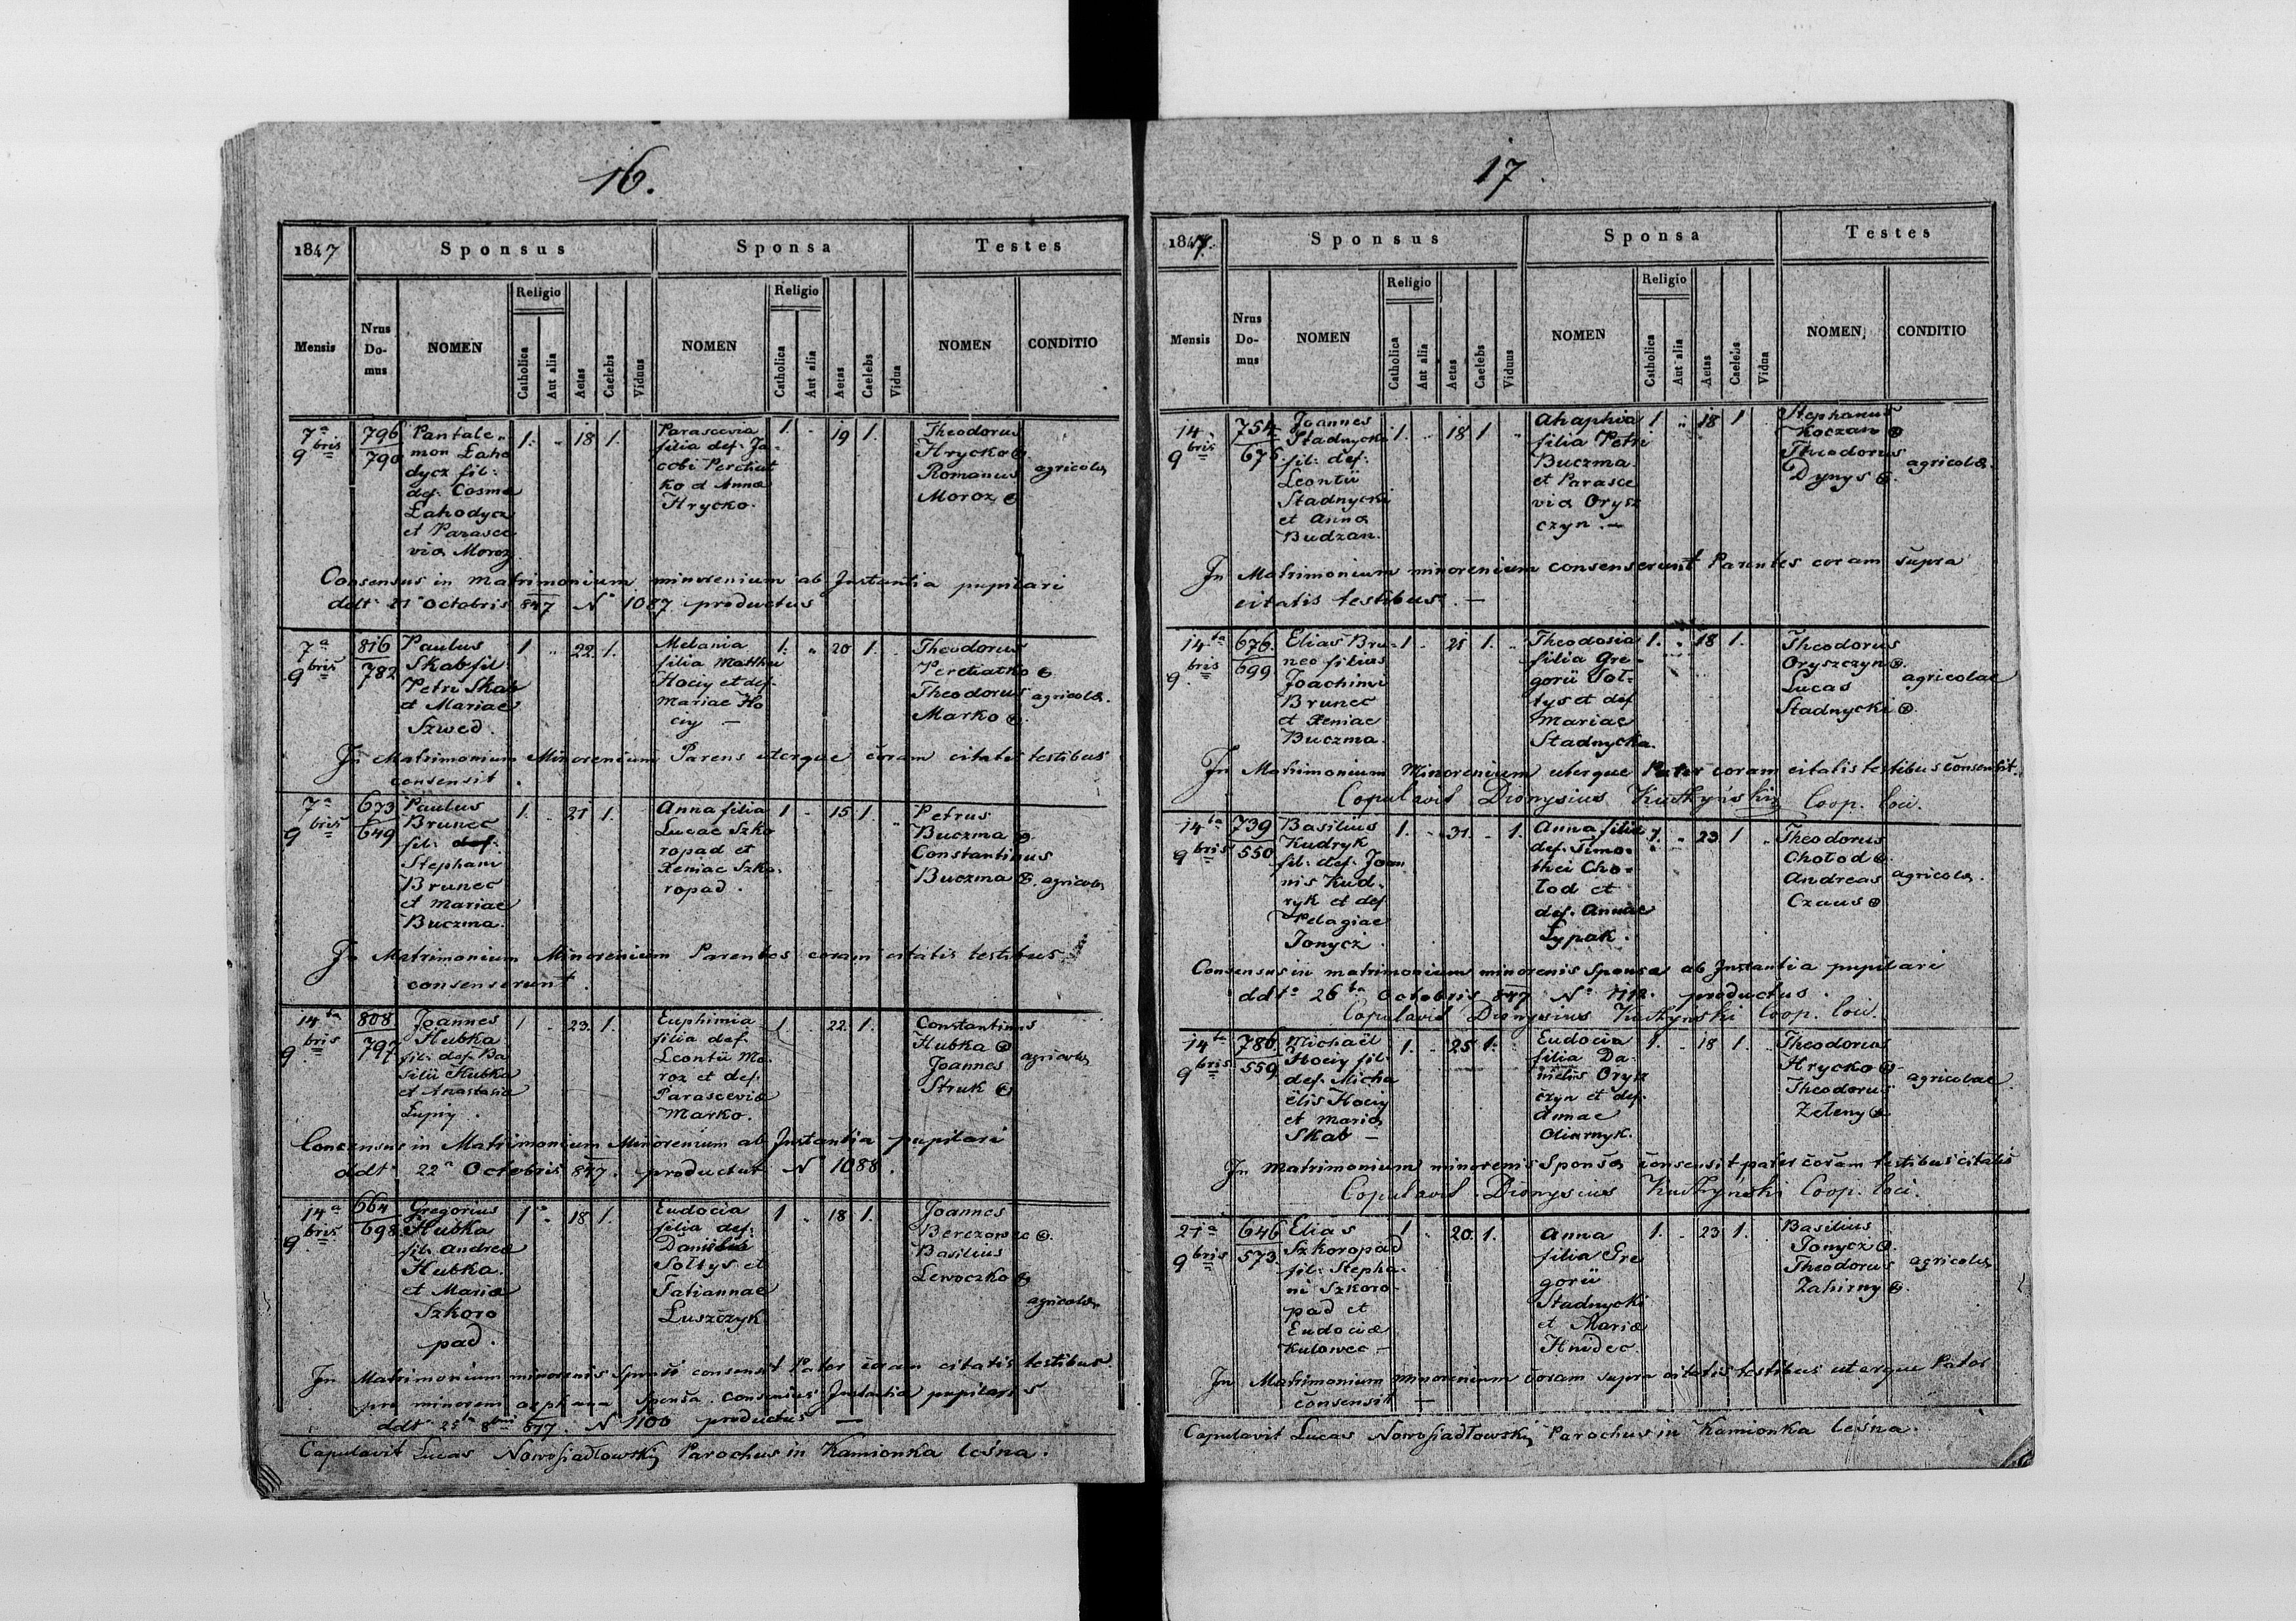 16.
1847
Sponsus
Sponsa
Testes
Mensis
Nrus Do- mus
NOMEN
Religio
Catholica
Aut alia
Aetas
Caelebs
Viduus
NOMEN
Religio
Catholica
Aut alia
Aetas
Caelebs
Vidua
NOMEN
CONDITIO
7a 9bris
796
790
Pantale-
mon Łaho
dycz fil:
def. Cosmae
Łahodycz
et Parasce
via Moroz
1. 18 1.
Parascevia
filia def. Ja-
cobi Peretiat
ko et Anna
Hrycko.
1. 19 1.
Theodorus
Hrycko
Romanus
Moroz
agricolae
Consensus in matrimonium minorenium ab Instantia pupilari
ddt 21 Octobris 847 No 1087 productus
7a 9bris
816
782
Paulus
Skab fil
Petri Skab
et Mariae
Szwed.
1. 22 1.
Melania
filia Matthei
Hociy et def.
Mariae Ho
ciy —
1. 20 1.
Theodorus
Peretiatko
Theodorus
Marko
agricolae.
In Matrimonium Minorenium Parens uterque coram citatis testibus
consensit.
7a 9bris
673
649
Paulus
Brunec
fil. def.
Stephani
Brunec
et Mariae
Buczma.
1. 21 1.
Anna filia
Lucae Szko
ropad et
Xeniae Szko-
ropad.
1. 15 1.
Petrus
Buczma
Constantinus
Buczma
agricolae
In Matrimonium Minorenium Parentes coram citatis testibus
consenserunt.
14ta 9bris
808
797
Joannes
Hubka
fil. def. Ba
silii Hubka
et Anastasia
Łupiy.
1 23. 1.
Euphimia
filia def.
Leontii Mo-
roz et def.
Parasceviae
Marko.
1. 22. 1.
Constantinus
Hubka
Joannes
Struk
agricolae
Concensus in Matrimonium Minorenium ab Instantia pupilari
ddt 22a Octobris 847. productus No 1088.
14a 9bris
664
698
Gregorius
Hubka
fil. Andreae
Hubka.
et Mariae
Szkoro
pad.
1 18 1.
Eudocia
filia def.
Danielis
Sołtys et
Tatiannae
Łuszczyk
1 18 1.
Joannes
Berezowec
Basilius
Lewoczko
agricolae
In Matrimonium minorenis Sponsi consensit Pater coram citatis testibus.
pro minorem orphana Sponsa. consensus Instantia pupilaris
ddt 8bris 847. No 1100 productus —
Copulavit Lucas Nowosiadłowskij Parochus in Kamionka leśna.
17.
1847.
Sponsus
Sponsa
Testes
Mensis
Nrus Do- mus
NOMEN
Religio
Catholica
Aut alia
Aetas
Caelebs
Viduus
NOMEN
Religio
Catholica
Aut alia
Aetas
Caelebs
Vidua
NOMEN
CONDITIO
14 9bris
754
675
Joannes
Stadnycki
fil: def.
Leontii
Stadnycki
et Anna
Budzan.
1. 18 1
Ahaphia
filia Petri
Buczma
et Parasce
via Orysz
czyn. —
1 18 1
Stephanus
Koczan
Theodorus
Dynys
agricolae.
In Matrimonium minorenium consenserunt Parentes coram supra
citatis testibus. —
14ta 9bris
676
699
Elias Bru-
nec filius
Joachimi
Brunec
et Xeniae
Buczma.
1. 21 1.
Theodosia
filia Gre-
gorii Soł-
tys et def
Mariae
Stadnycka.
1. 18 1.
Theodorus
Oryszczyn
Lucas
Stadnycki
agricolae
In Matrimonium Minorenium uterque Pater coram citatis testibus consensit.
Copulavit Dionysius Kuczyński Coop. loci.
14ta 9bris
739
550
Basilius
Kudryk
fil. def. Joan
nis Kud-
ryk et def
Pelagiae
Jonycz.
1. 31. 1.
Anna filia
def. Timo-
thei Cho-
łod et
def. Annae
Łypak.
1. 23 1
Theodorus
Chołod
Andreas
Czaus
agricolae.
Consensus in matrimonium minorenis Sponsa ab Instantia pupilari
ddto 26ta Octobris 847 No 1112. productus.
Copulavit Dionysius Kuczyński Coop. loci.
14ta 9bris
786
559
Michaël
Hociy fil.
def. Micha
ëlis Hociy
et Maria
Skab —
1. 25 1.
Eudocia
filia Da-
nielis Orysz
czyn et def.
Annae
Oliarnyk.
1. 18 1.
Theodorus
Hrycko
Theodorus
Zeleny
agricolae.
In Matrimonium minorenis Sponsa consensit pater coram testibus citatis
Copulavit Dionysius Kuczyński Coop. loci.
21a 9bris
646
573
Elias
Szkoropad
fil. Stepha-
ni Szkoro-
pad et
Eudociae
Kulowec —
1 20 1.
Anna
filia Gre
gorii
Stadnycki
et Mariae
Hnidec.
1. 23 1.
Basilius
Jonycz
Theodorus
Zahirny
agricolae
In Matrimonium minorenium coram supra citatis testibus uterque Pater
consensit —
Copulavit Lucas Nowosiadłowskij Parochus in Kamionka leśna.